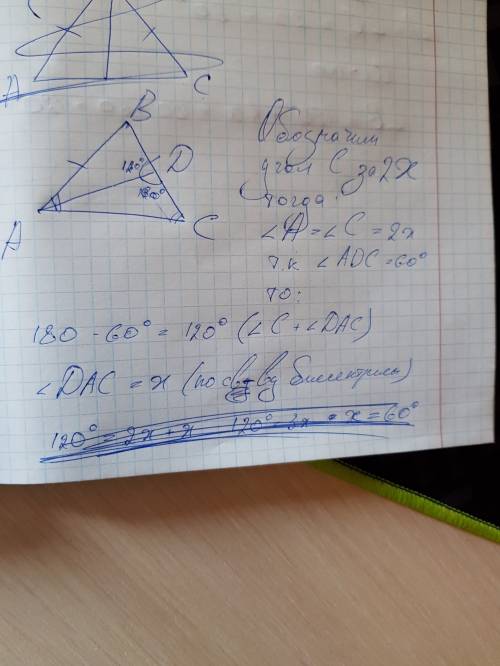 A C
B
120° D
A C
Обозначим
угол C за 2x
тогда:
∠A = ∠C = 2x
т.к. ∠ADC = 60°
то:
180 - 60° = 120° (∠C + ∠DAC)
∠DAC = x (по св-ву биссектрисы)
120° = 2x + x 120° 3x x = 60°